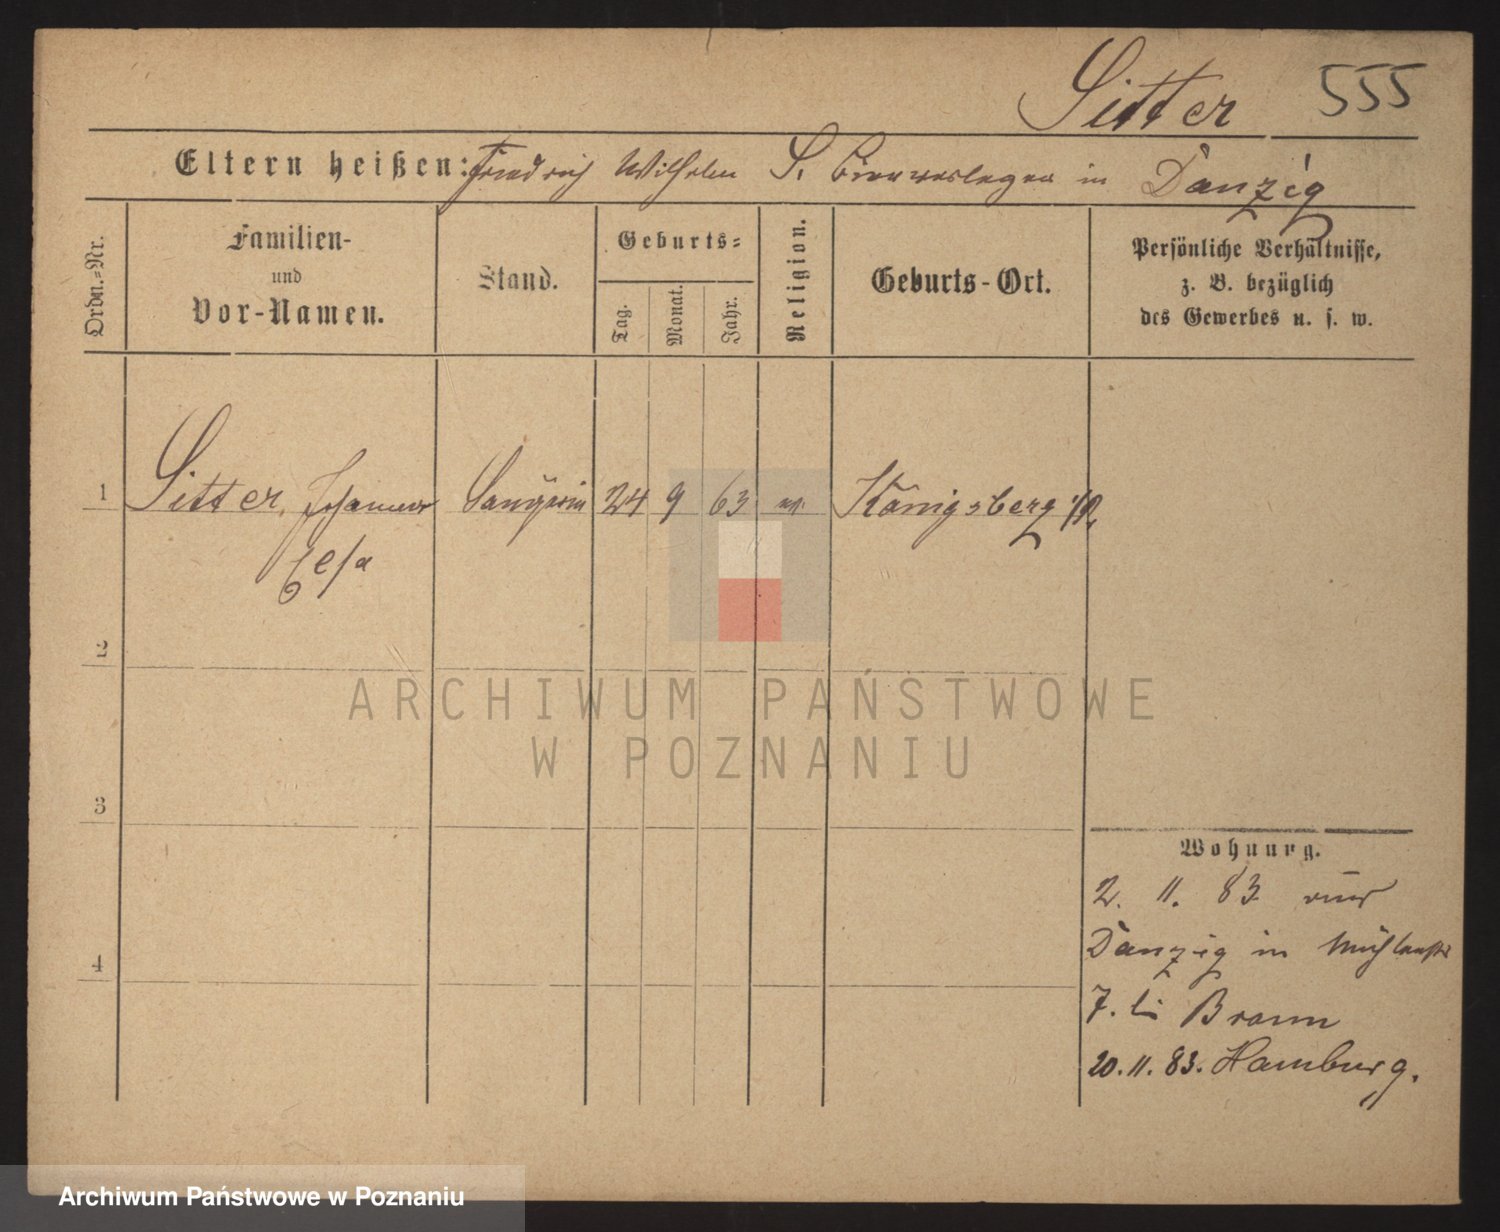 Sitter 555
Eltern heißen: Friedrich Wilhelm S. Bierverleger in Danzig
Ordn.=Nr.
Familien-
und
Vor-Namen.
Stand.
Geburts=
Tag.
Monat.
Jahr.
Religion.
Geburts-Ort.
Persönliche Verhältnisse,
z. B. bezüglich
des Gewerbes u. s. w.
1 Sitter, Johanna Sängerin 24 9 63 Königsberg i/P.
2
3
4
Wohnung.
2. 11. 83 aus
Danzig in Mühlenstr
7. bei Braun
20. 11. 83. Hamburg.
ARCHIWUM PAŃSTWOWE
W POZNANIU
Archiwum Państwowe w Poznaniu